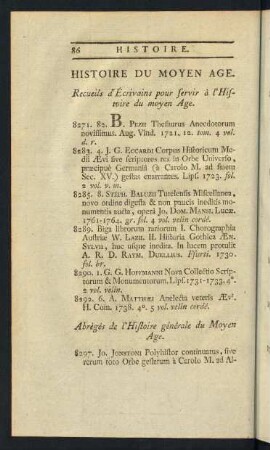 86 HISTOIRE.
HISTOIRE DU MOYEN AGE.
Recueils d'Écrivains pour servir à l'His-
toire du moyen Age.
8271. 82. B. PEZII Thesaurus Anecdotorum
novissimus. Aug. Vind. 1721. 12. tom. 4 vol.
d. r.
8283. 4. J. G. ECCARDI Corpus Historicum Me-
dii Ævi sive scriptores res in Orbe Universo,
præcipuè Germaniâ (à Carolo M. ad finem
Sec. XV.) gestas enarrantes. Lips. 1723. fol.
2 vol. v. m.
8285. 8. STEPH. BALUZII Tutelensis Miscellanea,
novo ordine digesta & non paucis ineditis mo-
numentis aucta, operâ Jo. DOM. MANSI, LUCÆ.
1761-1764. gr. fol. 4 vol. velin cordé.
8289. Biga librorum rariorum I. Chorographia
Austriæ W. LAZII. II. Historia Gothica ÆN.
SYLVII, huc usque inedita. In lucem protulit
A. R. D. RAYM. DUELLIUS. Francf. 1730.
fol. br.
8290. 1. G. G. HOFFMANNI Nova Collectio Scrip-
torum & Monumentorum, Lips. 1731-1733. 4°.
2 vol. velin.
8292. 6. A. MATTHÆI Analecta veteris Ævi,
H. Com. 1738. 4°. 5 vol. velin cordé.
Abrégés de l'Histoire générale du Moyen
Age.
8297. Jo. JONSTONI Polyhistor continuatus, sive
rerum toto Orbe gestarum à Carolo M. ad Al-